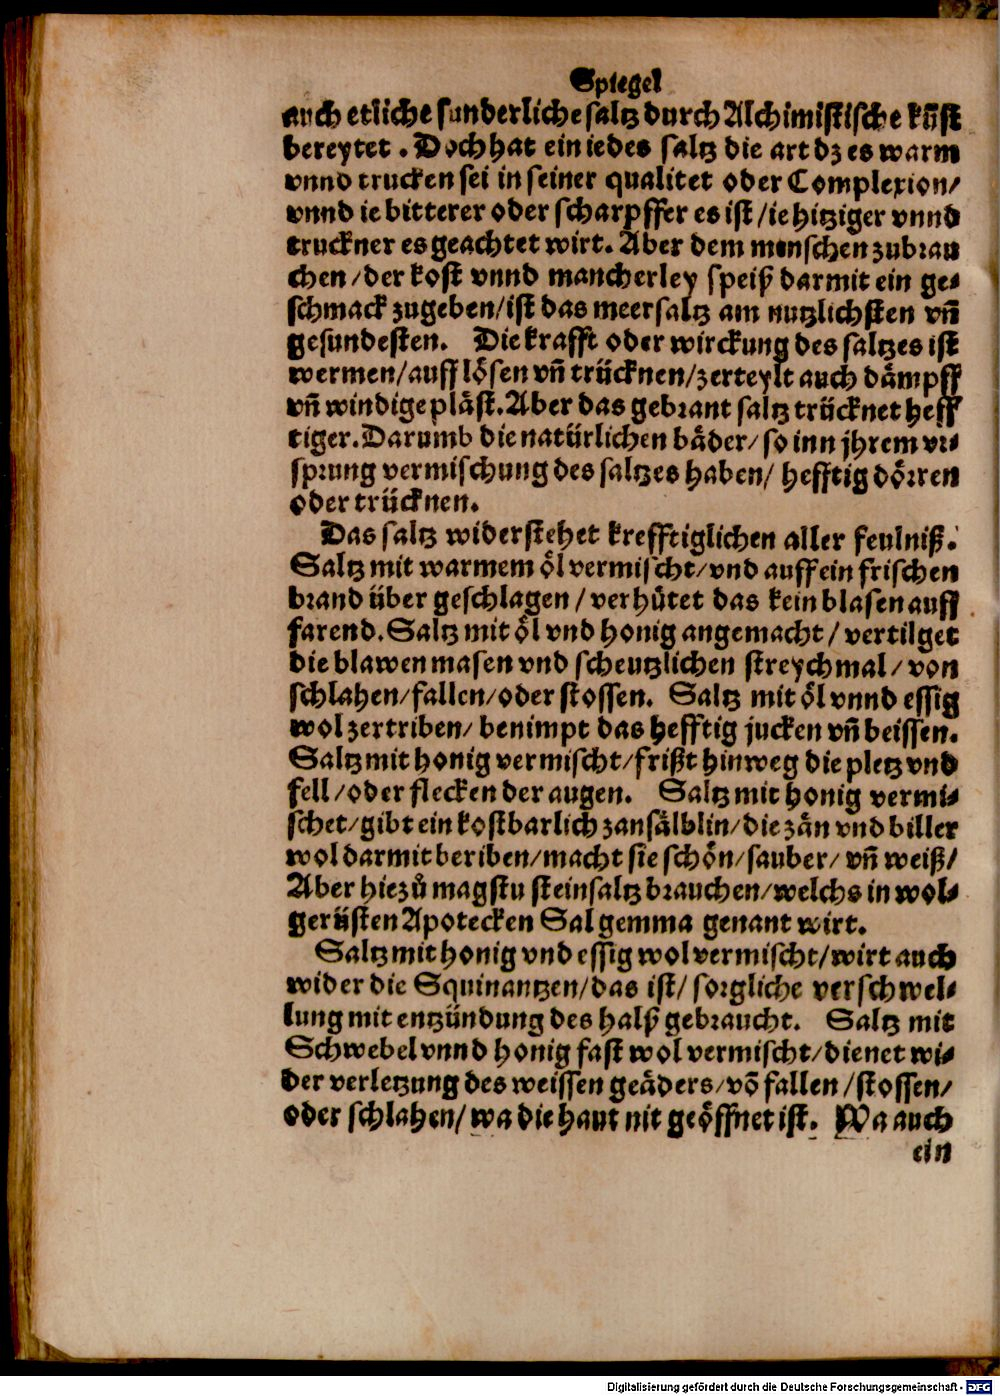 Spiegel
auch etliche sunderliche saltz durch Alchimistische kũst
bereytet. Doch hat ein iedes saltz die art dz es warm
vnnd trucken sei in seiner qualitet oder Complexion/
vnnd ie bitterer oder scharpffer es ist/ie hitziger vnnd
truckner es geachtet wirt. Aber dem menschen zubrau
chen/der kost vnnd mancherley speiß darmit ein ge⸗
schmack zugeben/ist das meersaltz am nutzlichsten vñ
gesundesten. Die krafft oder wirckung des saltzes ist
wermen/aufflösen vñ trücknen/zerteylt auch dämpff
vñ windige pläst. Aber das gebrant saltz trücknet heff
tiger. Darumb die natürlichen bäder/so inn jhrem vr⸗
sprung vermischung des saltzes haben/ hefftig dörren
oder trücknen.
Das saltz widerstehet krefftiglichen aller feulniß.
Saltz mit warmem öl vermischt/vnd auff ein frischen
brand über geschlagen/verhütet das kein blasen auff
farend. Saltz mit öl vnd honig angemacht/vertilget
die blawen masen vnd scheutzlichen streychmal/von
schlahen/fallen/oder stossen. Saltz mit öl vnnd essig
wol zertriben/benimpt das hefftig jucken vñ beissen.
Saltz mit honig vermischt/frißt hinweg die pletz vnd
fell/oder flecken der augen. Saltz mit honig vermi⸗
schet/gibt ein kostbarlich zansälblin/die zän vnd biller
wol darmit beriben/macht sie schön/sauber/vñ weiß/
Aber hiezů magstu steinsaltz brauchen/welchs in wol⸗
gerüsten Apotecken Sal gemma genant wirt.
Saltz mit honig vnd essig wol vermischt/wirt auch
wider die Squinantzen/das ist/sorgliche verschwel⸗
lung mit entzündung des halß gebraucht. Saltz mit
Schwebel vnnd honig fast wol vermischt/dienet wi⸗
der verletzung des weissen geäders/võ fallen/stossen/
oder schlahen/wa die haut nit geöffnet ist. Wa auch
ein
Digitalisierung gefördert durch die Deutsche Forschungsgemeinschaft - DFG